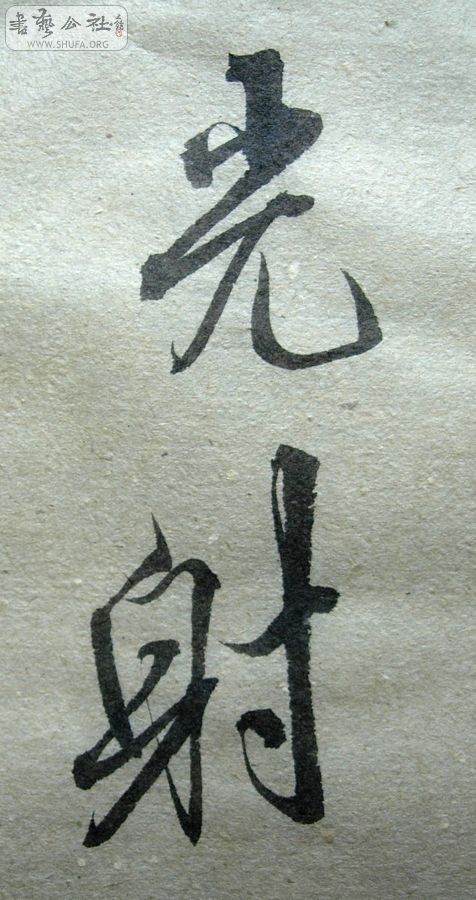 書藝公社
WWW.SHUFA.ORG
光射